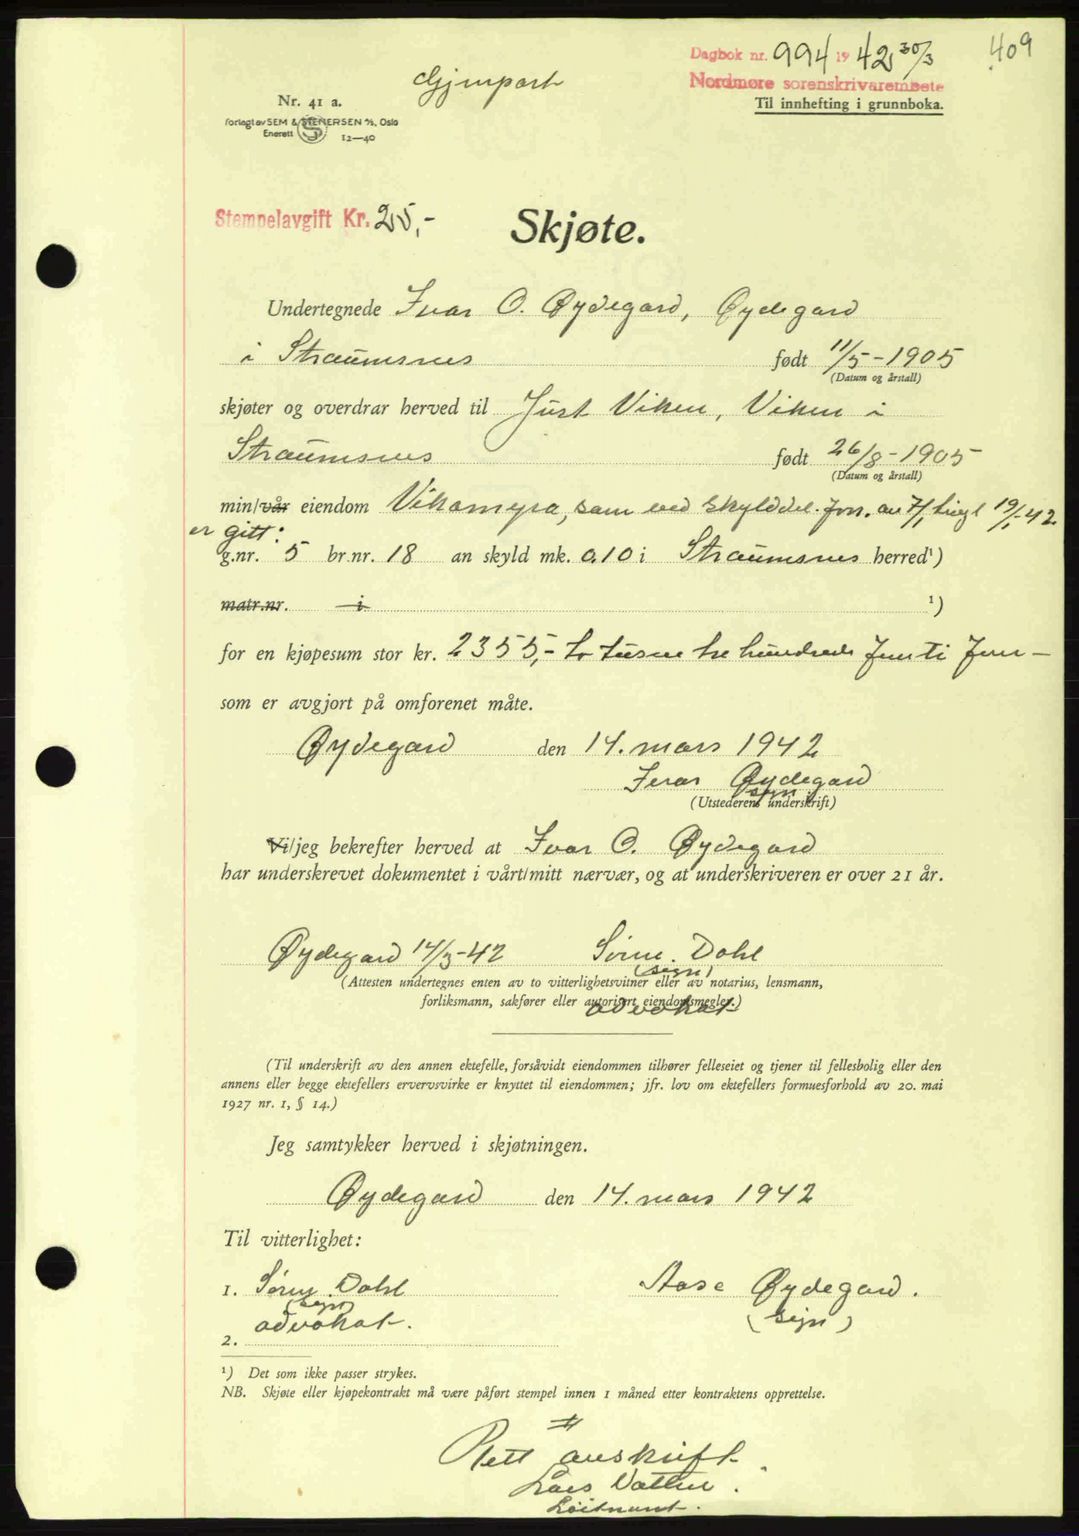 409
Dagbok nr. 994 1942 30/3
Nordmøre sorenskrivarembete
Til innhefting i grunnboka.
Gjenpart
Nr. 41 a.
Forlagt av SEM & STENERSEN A/S, Oslo
Enerett 12—40
Stempelavgift Kr. 25,-
Skjøte.
Undertegnede Ivar O. Øydegard, Øydegard
i Straumsnes født 11/5-1905
(Datum og årstall)
skjøter og overdrar herved til Just Viken, Viken i
Straumsnes født 26/8-1905
(Datum og årstall)
min/vår eiendom Vikamyra, som ved skylddel. forr. av 7/1 tingl 19/1-42
er gitt:
g.nr. 5 br.nr. 18 an skyld mk. 0.10 i Straumsnes herred¹)
matr.nr. i ¹)
for en kjøpesum stor kr. 2355,- to tusen tre hundrede femti fem —
som er avgjort på omforenet måte.
Øydegard den 14. mars 1942
Ivar Øydegard
sign
(Utstederens underskrift)
Vi/jeg bekrefter herved at Ivar O. Øydegard
har underskrevet dokumentet i vårt/mitt nærvær, og at underskriveren er over 21 år.
Øydegard 14/3-42 Dahl
(sign)
(Attesten undertegnes enten av to vitterlighetsvitner eller av notarius, lensmann,
forliksmann, sakfører eller autorisert eiendomsmegler.)
advokat
(Til underskrift av den annen ektefelle, forsåvidt eiendommen tilhører felleseiet og tjener til fellesbolig eller den
annens eller begge ektefellers ervervsvirke er knyttet til eiendommen; jfr. lov om ektefellers formuesforhold av 20. mai
1927 nr. 1, § 14.)
Jeg samtykker herved i skjøtningen.
Øydegard den 14. mars 1942
Til vitterlighet:
1. Dahl Aase Øydegard.
(sign) (sign)
advokat.
2.
¹) Det som ikke passer strykes.
NB. Skjøte eller kjøpekontrakt må være påført stempel innen 1 måned etter kontraktens opprettelse.
Rett avskrift
Lars